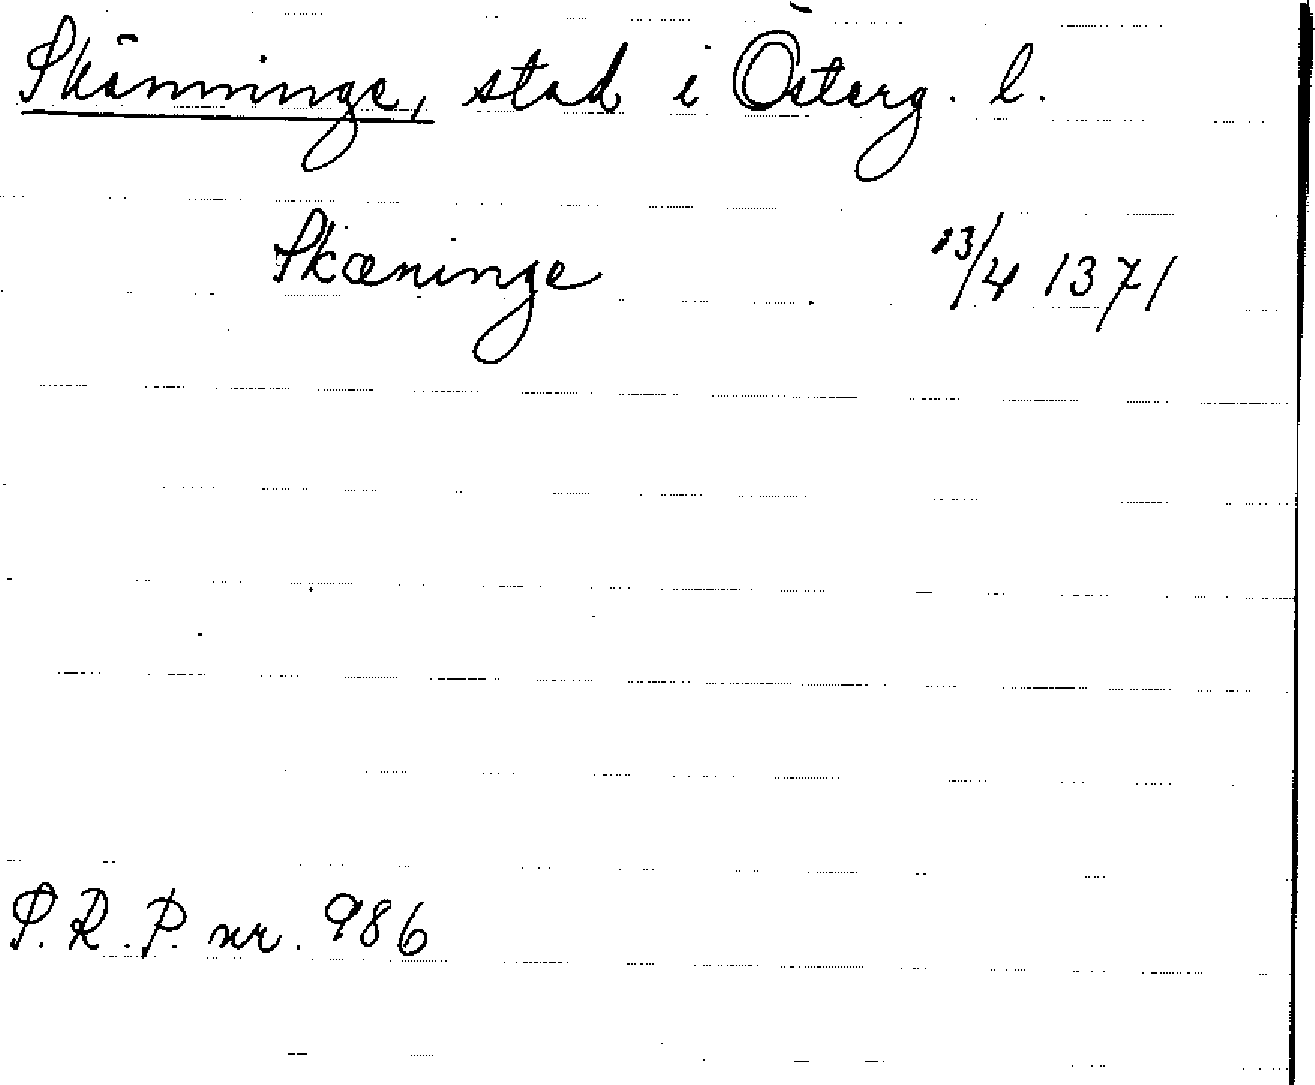 Skänninge, stad i Österg. l.
Skæninge 13/4 1371
S.R.P. nr. 986